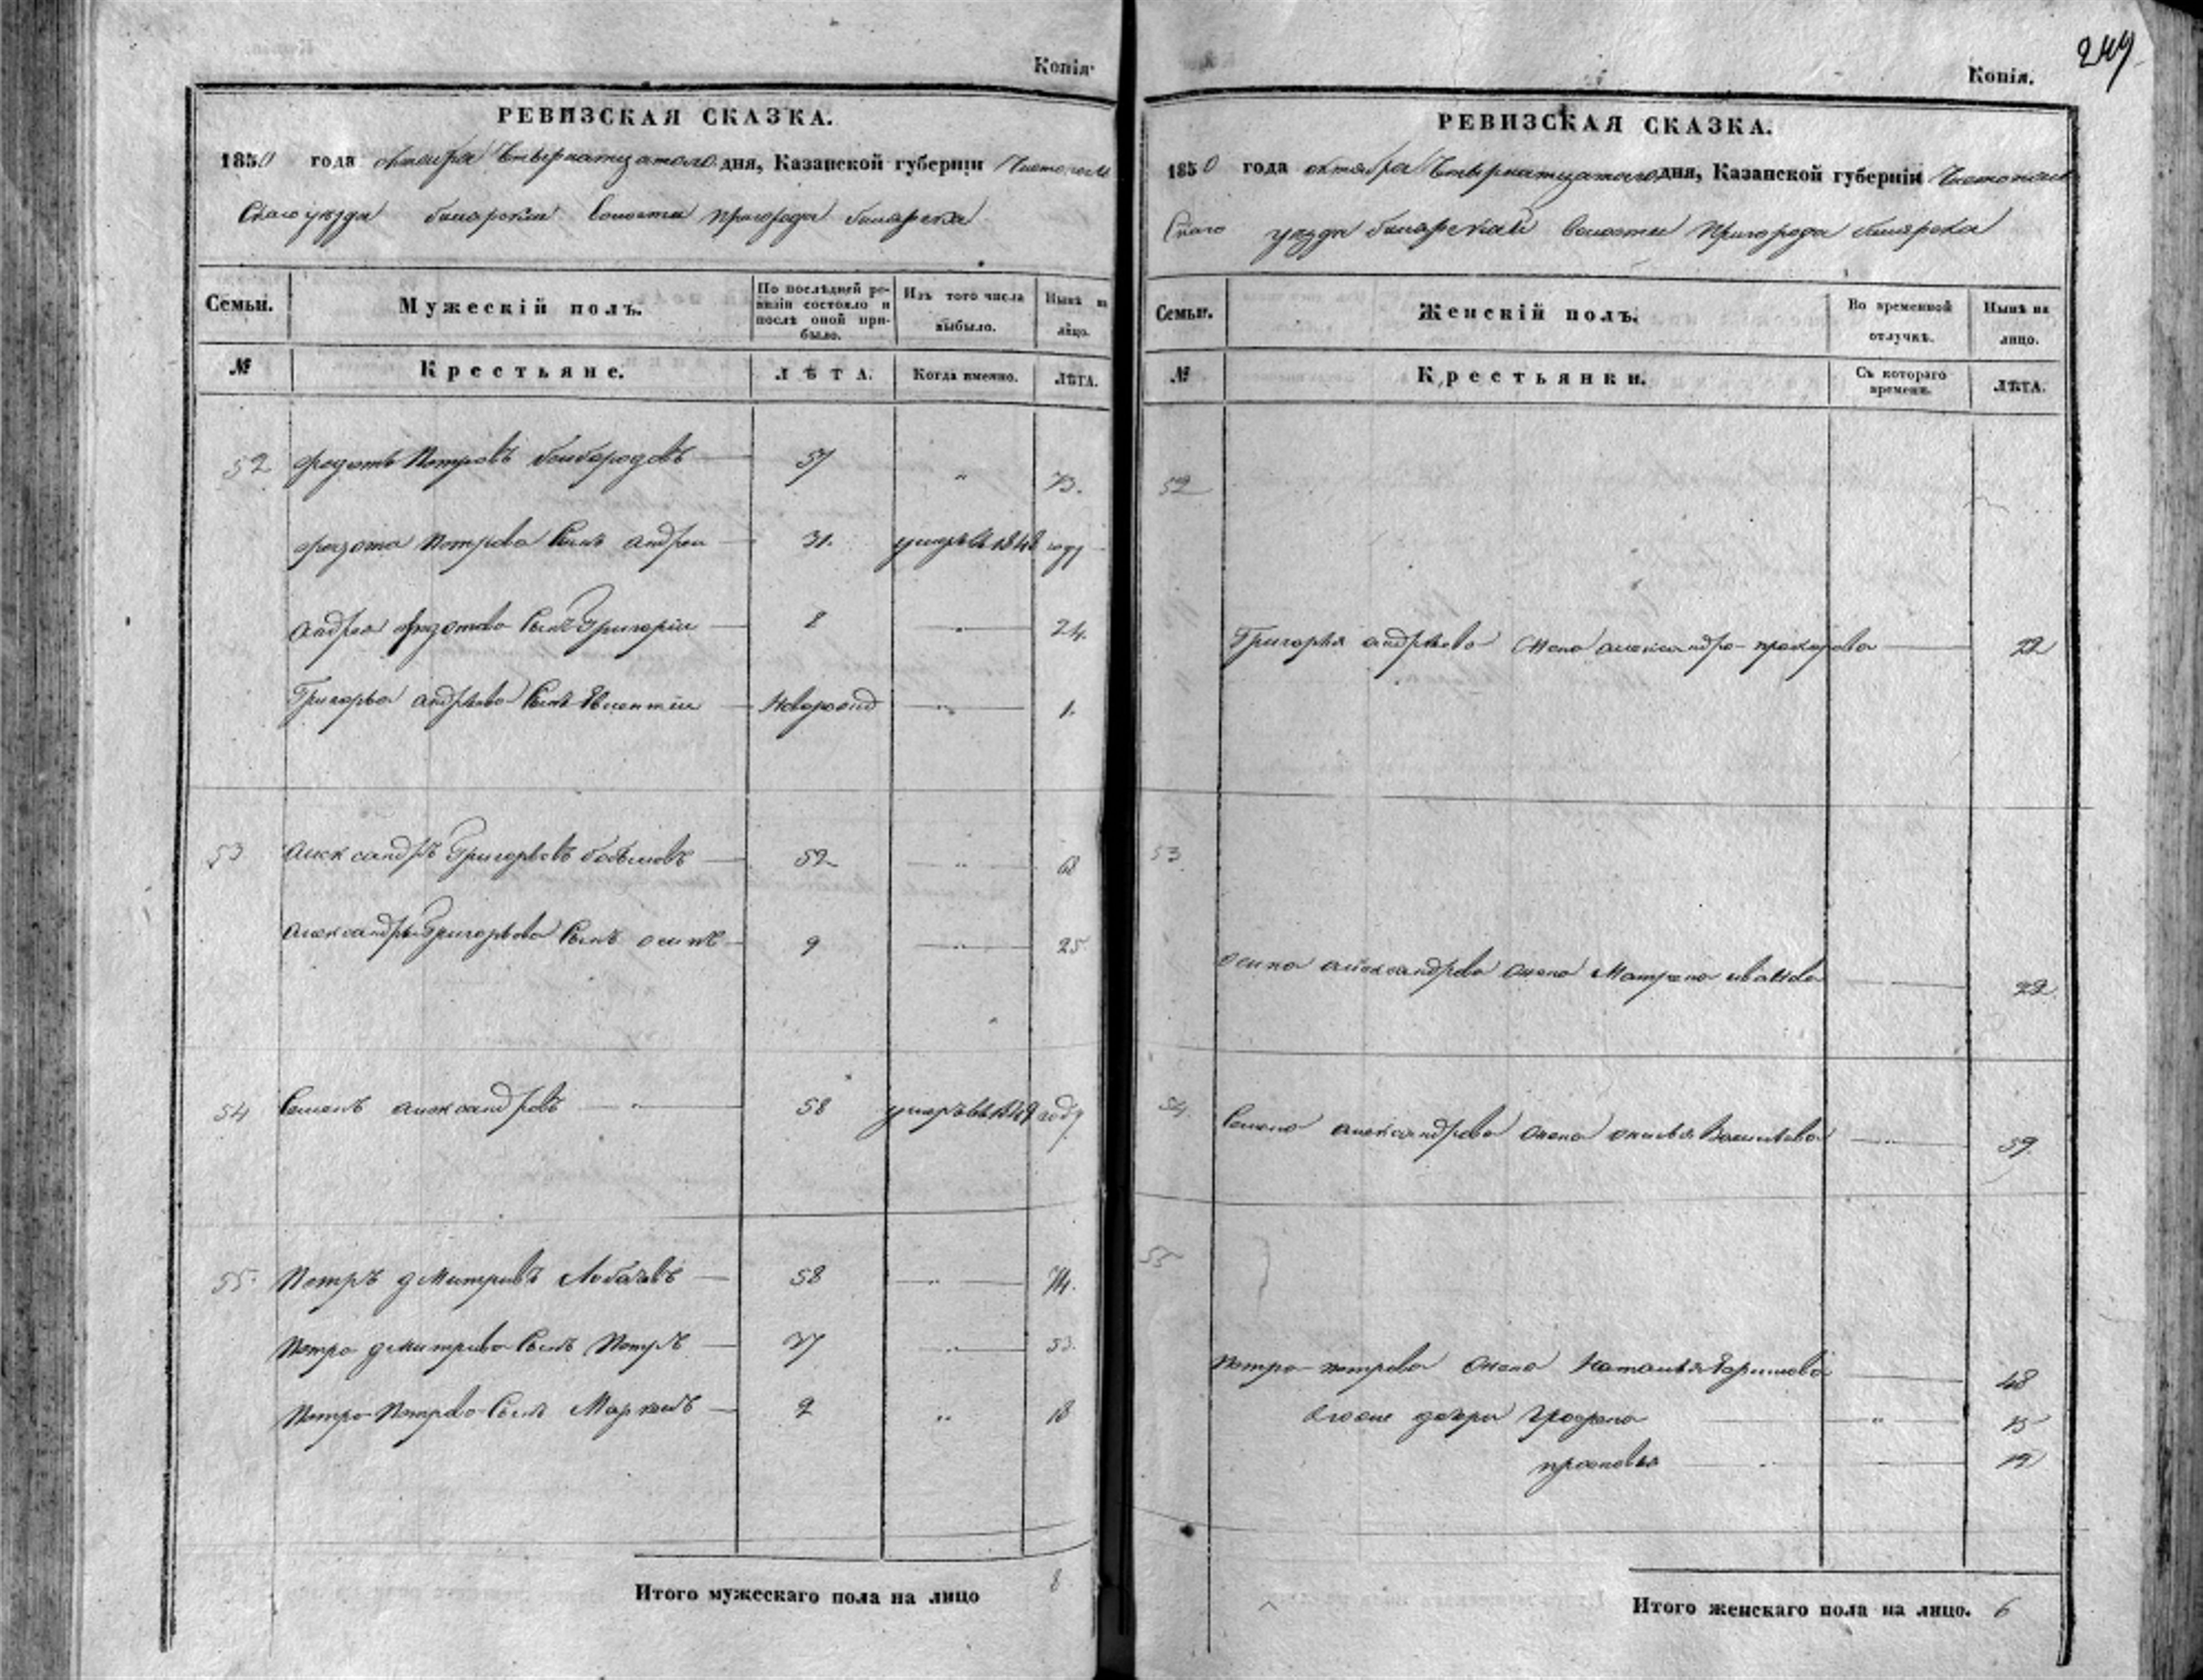 Копія.
РЕВИЗСКАЯ СКАЗКА.
1850 года октября Четырнатцатого дня, Казанской губерніи Чистополь
Скаго уезда билярской волости пригорода билярска
Семьи.
Мужескій полъ.
По послѣдней ре-
визіи состояло и
послѣ оной при-
было.
Изъ того числа
выбыло.
Нынѣ на
лицо.
№
Крестьяне.
ЛѢТА.
Когда именно.
ЛѢТА.
52 Федотъ Петровъ 57 " 73.
Федота Петрова Сынъ андрей 31. умеръ въ 1848 году
андрея Федотова Сынъ Григорій 8 24.
Григорья андреева Сынъ новорожд 1.
53 Александръ Григорьевъ 52 68
Александра Григорьева Сынъ осипъ 9 25
54 Семенъ александровъ 58 умеръ въ 1849 году
55. Петръ дмитриевъ Лобачевъ 58 74.
Петра дмитриева Сынъ Петръ 37 53.
Петра Петрова Сынъ Маркелъ 2 " 18
Итого мужескаго пола на лицо 8
249
Копія.
РЕВИЗСКАЯ СКАЗКА.
1850 года октября Четырнатцатого дня, Казанской губерніи Чистополь
Скаго уезда билярской волости пригорода билярска
Семьи.
Женскій полъ.
Во временной
отлучкѣ.
Нынѣ на
лицо.
№
Крестьянки.
Съ котораго
времени.
ЛѢТА.
52
Григорья андреева жена александра прохорова 22
53
осипа александрова жена Матрена иванова 22
54
Семена александрова жена Васильева 59
55
Петра петрова жена Наталья 48
дочери 15
прасковья 12
Итого женскаго пола на лицо. 6